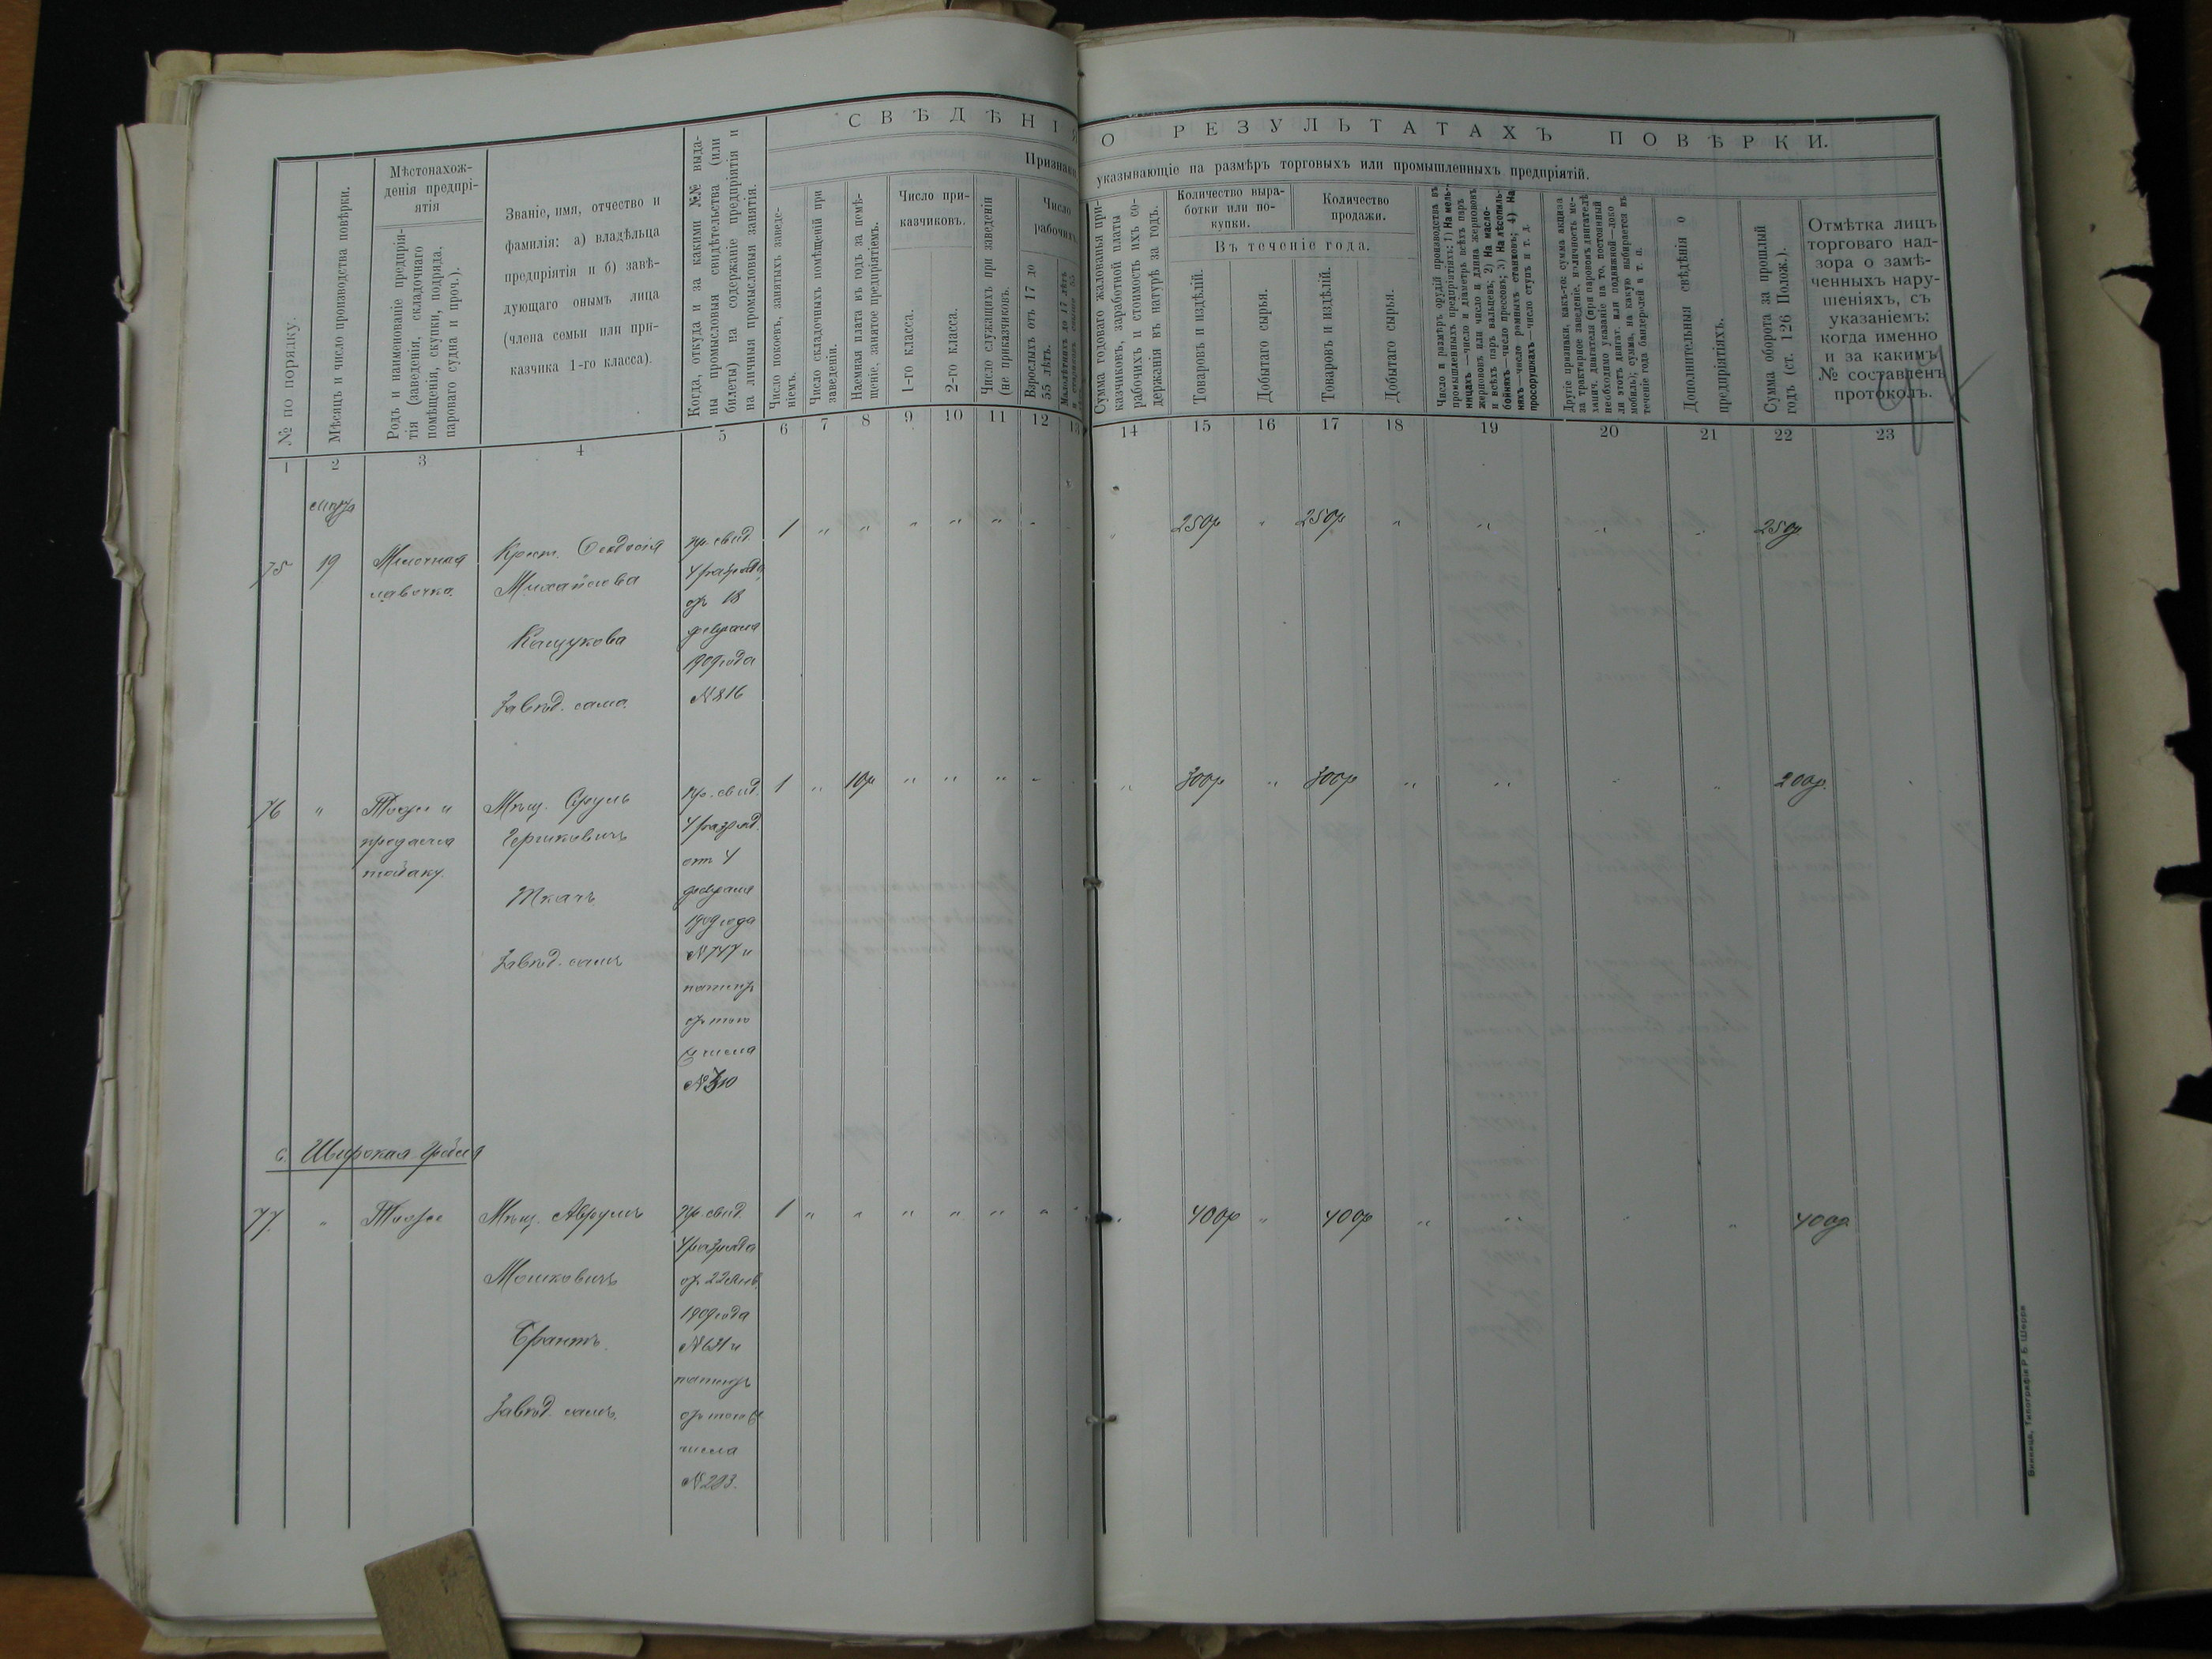 СВѢДѢНІЯ О РЕЗУЛЬТАТАХЪ ПОВѢРКИ.
Признаки, указывающіе на размѣръ торговыхъ или промышленныхъ предпріятій.
№ по порядку.
Мѣсяцъ и число производства повѣрки.
Мѣстонахож-
денія предпрі-
ятія
Родъ и наименованіе предпрія-
тія (заведенія, складочнаго
помѣщенія, скупки, подряда,
пароваго судна и проч.).
Званіе, имя, отчество и
фамилія: а) владѣльца
предпріятія и б) завѣ-
дующаго онымъ лица
(члена семьи или при-
казчика 1-го класса).
Когда, откуда и за какими №№ выда-
ны промысловыя свидѣтельства (или
билеты) на содержаніе предпріятія и
на личныя промысловыя занятія.
Число покоевъ, занятыхъ заведе-
ніемъ.
Число складочныхъ помѣщеній при
заведеніи.
Наемная плата въ годъ за помѣ-
щеніе, занятое предпріятіемъ.
Число при-
казчиковъ.
1-го класса.
2-го класса.
Число служащихъ при заведеніи
(не приказчиковъ).
Число
рабочихъ.
Взрослыхъ отъ 17 до
55 лѣтъ.
Малолѣтнихъ до 17 лѣтъ
Сумма годоваго жалованья при-
казчиковъ, заработной платы
рабочихъ и стоимость ихъ со-
держанія въ натурѣ за годъ.
Количество выра-
ботки или по-
купки.
Количество
продажи.
Въ теченіе года.
Товаровъ и издѣлій.
Добытаго сырья.
Товаровъ и издѣлій.
Добытаго сырья.
Число и размѣръ орудій производства въ
промышленныхъ предпріятіяхъ: 1) На мель-
ницахъ—число и діаметръ всѣхъ паръ
жернововъ или число и длина жернововъ
и всѣхъ паръ вальцевъ; 2) На масло-
бойняхъ—число прессовъ; 3) На лѣсопиль-
няхъ—число рамныхъ станковъ; 4) На
просорушкахъ—число ступъ и т. д.
Другіе признаки, какъ-то: сумма акциза
за трактирное заведеніе, наличность ме-
ханич. двигателя (при паровомъ двигателѣ
необходимо указаніе на то, постоянный
ли этотъ двигат. или подвижной—локо-
мобиль); сумма, на какую выбирается въ
теченіе года бандеролей и т. п.
Дополнительныя свѣдѣнія о
предпріятіяхъ.
Сумма оборота за прошлый
годъ (ст. 126 Полож.).
Отмѣтка лицъ
торговаго над-
зора о замѣ-
ченныхъ нару-
шеніяхъ, съ
указаніемъ:
когда именно
и за какимъ
№ составленъ
протоколъ.
1 2 3 4 5 6 7 8 9 10 11 12 13 14 15 16 17 18 19 20 21 22 23
Марта
75 19 Мелочная Крест. Феодосія пр. свид. 1 " " " " " " " 250р " 250р " " " " 250р.
лавочка. Михайлова 4 разряда
от 18
Кащукова февраля
1909 года
Завѣд. сама. №816
76 " Тоже и Мѣщ. Сруль пр. свид. 1 " 10р " " " " " 300р " 300р " " " " 200р.
продажа Гершковичъ 4 разряд.
табаку. от 4
Ткачъ февраля
1909 года
Завѣд. самъ №747 и
патентъ
от того
числа
№310
с. Широкая Гребля
77. " Тоже Мѣщ. Аврумъ пр. свид. 1 " " " " " " " 400р " 400р " " " " 400р.
4 разряда
Мошковичъ от 22 Янв.
1909 года
Франтъ. №631 и
патентъ
Завѣд. самъ. от того
числа
№203.
Винница, Типографія Р. Б. Шерра